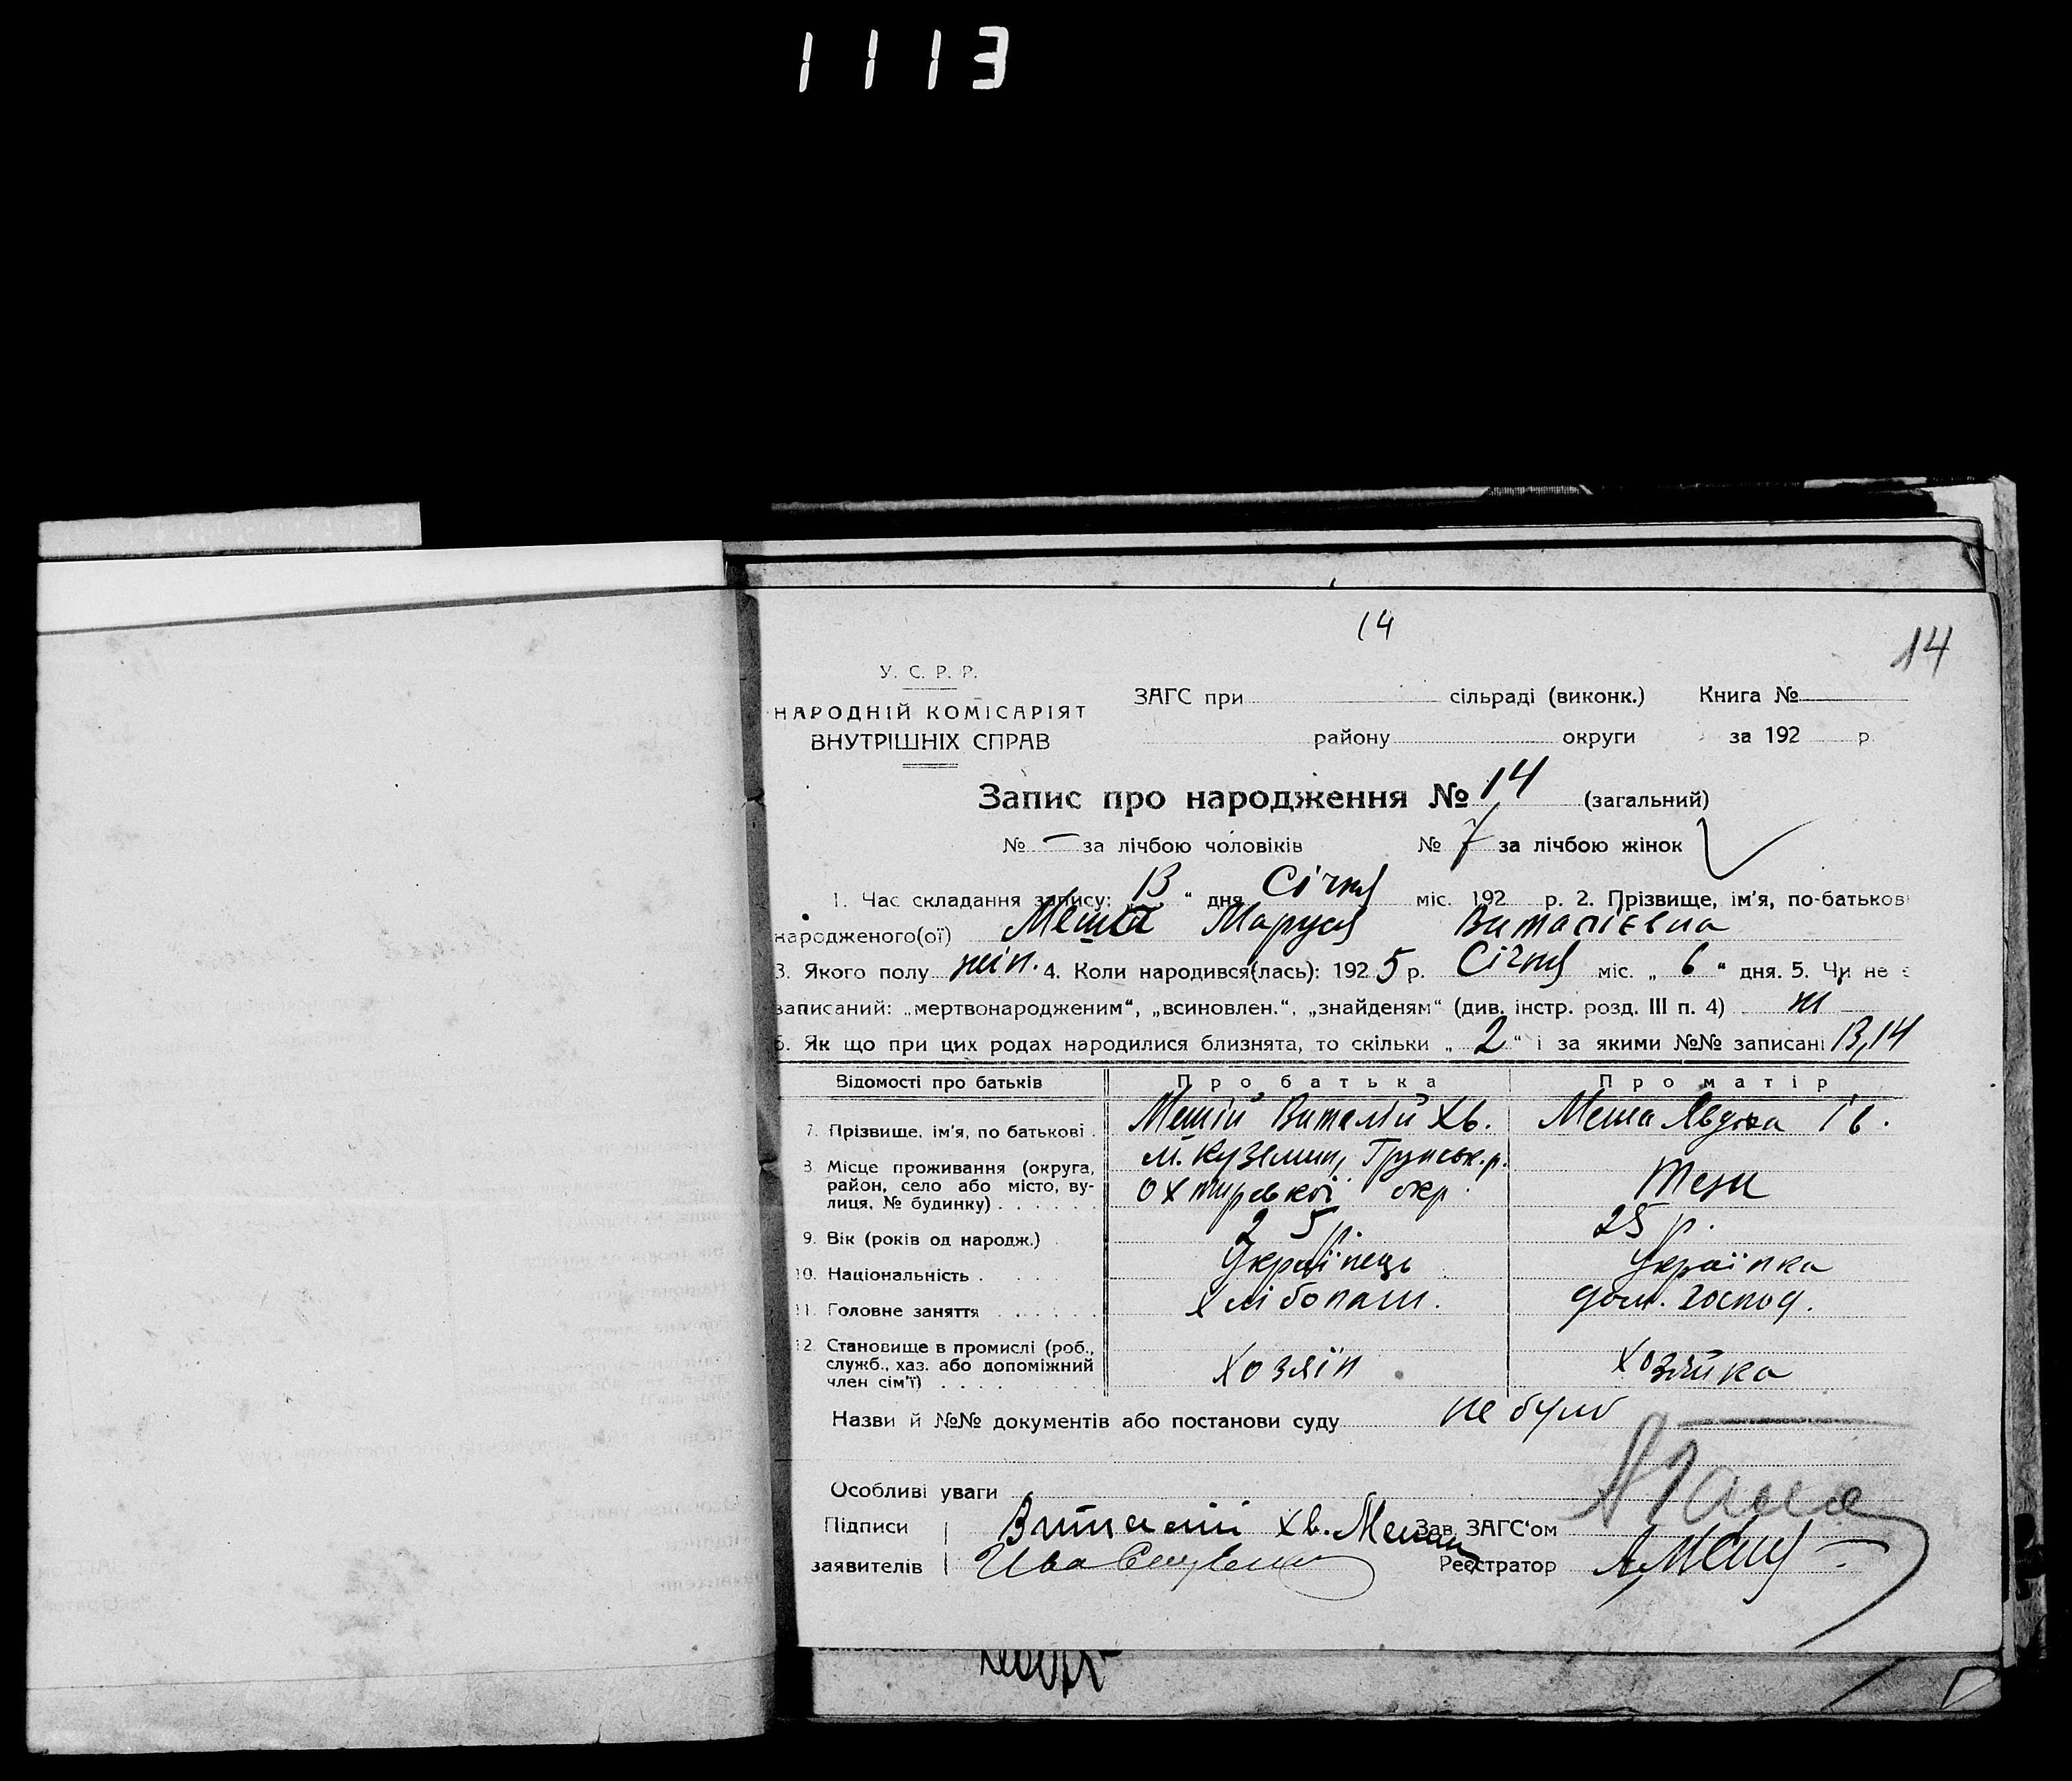 1113
14
14
У. С. Р. Р.
НАРОДНІЙ КОМІСАРІЯТ
ВНУТРІШНІХ СПРАВ
ЗАГС при сільраді (виконк.) Книга №
району округи за 192 р.
Запис про народження № 14 (загальний)
№ — за лічбою чоловіків № 7 за лічбою жінок
1. Час складання запису: „13“ дня Січня міс. 192 р. 2. Прізвище, ім'я, по-батькові
народженого(ої) Меша Маруся Виталієвна
3. Якого полу жін. 4. Коли народився(лась): 1925 р. Січня міс. „6“ дня. 5. Чи не є
записаний: „мертвонародженим“, „всиновлен.“, „знайденям“ (див. інстр. розд. III п. 4) ні
6. Як що при цих родах народилися близнята, то скільки „2“ і за якими №№ записані 13,14
Відомості про батьків Про батька Про матір
7. Прізвище, ім'я, по батькові . Меший Виталій Хв. Меша Явдоха Ів.
8. Місце проживання (округа, район, село або місто, вулиця, № будинку) . . . . . . м. Куземин, Грунськ. р. Охтирської окр. Теж
9. Вік (років од народж.) 25 р. 25 р.
10. Національність . Українець Українка
11. Головне заняття . . . . . . Хлібопаш. дом. господ.
12. Становище в промислі (роб., служб., хаз. або допоміжний член сім'ї) . . . . Хозяїн Хозяйка
Назви й №№ документів або постанови суду не було
Особливі уваги
Підписи Виталий Хв. Меший Зав. ЗАГС'ом
заявителів Реєстратор